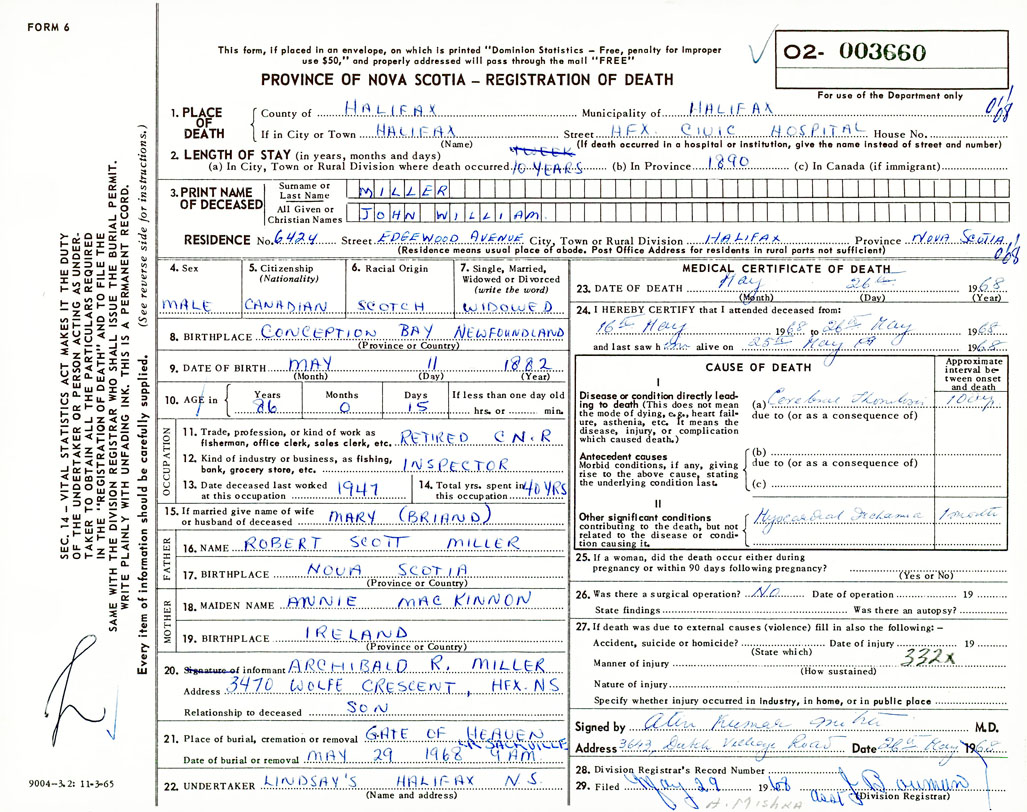 FORM 6
This form, if placed in an envelope, on which is printed "Dominion Statistics – Free, penalty for improper
use $50," and properly addressed will pass through the mail "FREE"
O2- 003660
PROVINCE OF NOVA SCOTIA – REGISTRATION OF DEATH
For use of the Department only
1. PLACE OF DEATH
County of HALIFAX Municipality of HALIFAX
If in City or Town HALIFAX Street HFX. CIVIC HOSPITAL House No.
(Name) (If death occurred in a hospital or institution, give the name instead of street and number)
2. LENGTH OF STAY (in years, months and days)
(a) In City, Town or Rural Division where death occurred 10 YEARS (b) In Province 1890 (c) In Canada (if immigrant)
3. PRINT NAME OF DECEASED
Surname or Last Name MILLER
All Given or Christian Names JOHN WILLIAM
RESIDENCE No. 6424 Street EDGEWOOD AVENUE City, Town or Rural Division HALIFAX Province NOVA SCOTIA
(Residence means usual place of abode. Post Office Address for residents in rural parts not sufficient)
068
4. Sex
MALE
5. Citizenship (Nationality)
CANADIAN
6. Racial Origin
SCOTCH
7. Single, Married, Widowed or Divorced (write the word)
WIDOWED
8. BIRTHPLACE CONCEPTION BAY NEWFOUNDLAND
(Province or Country)
9. DATE OF BIRTH MAY 11 1882
(Month) (Day) (Year)
10. AGE in
Years Months Days If less than one day old
86 0 15 hrs. or min.
OCCUPATION
11. Trade, profession, or kind of work as
fisherman, office clerk, sales clerk, etc. RETIRED C.N.R
12. Kind of industry or business, as fishing,
bank, grocery store, etc. INSPECTOR
13. Date deceased last worked
at this occupation 1947
14. Total yrs. spent in
this occupation 40 YRS
15. If married give name of wife
or husband of deceased MARY (BRIAND)
FATHER
16. NAME ROBERT SCOTT MILLER
17. BIRTHPLACE NOVA SCOTIA
(Province or Country)
MOTHER
18. MAIDEN NAME ANNIE MAC KINNON
19. BIRTHPLACE IRELAND
(Province or Country)
20. Signature of informant ARCHIBALD R. MILLER
Address 3470 WOLFE CRESCENT, HFX. N.S.
Relationship to deceased SON
21. Place of burial, cremation or removal GATE OF HEAVEN
SACKVILLE
Date of burial or removal MAY 29 1968 9 AM.
22. UNDERTAKER LINDSAY'S HALIFAX N.S.
(Name and address)
MEDICAL CERTIFICATE OF DEATH
23. DATE OF DEATH May 26th 1968
(Month) (Day) (Year)
24. I HEREBY CERTIFY that I attended deceased from:
16th May 1968 to 26th May 1968
and last saw him alive on 25th May 1968
CAUSE OF DEATH
Approximate interval between onset and death
I
Disease or condition directly leading to death (This does not mean
the mode of dying, e.g., heart failure, asthenia, etc. It means the
disease, injury, or complication
which caused death.)
(a) Cerebral Thrombosis 10 days
due to (or as a consequence of)
Antecedent causes
Morbid conditions, if any, giving
rise to the above cause, stating
the underlying condition last.
(b)
due to (or as a consequence of)
(c)
II
Other significant conditions
contributing to the death, but not
related to the disease or condition causing it.
Myocardial Ischaemia 1 month
25. If a woman, did the death occur either during
pregnancy or within 90 days following pregnancy?
(Yes or No)
26. Was there a surgical operation? No Date of operation 19
State findings Was there an autopsy?
27. If death was due to external causes (violence) fill in also the following: –
Accident, suicide or homicide? Date of injury 19
(State which)
332x
Manner of injury
(How sustained)
Nature of injury
Specify whether injury occurred in industry, in home, or in public place
Signed by Kumar M.D.
Address 3643 Dutch Village Road Date 26th May 1968
28. Division Registrar's Record Number
29. Filed May 29 1968 asst J Bouman
(Division Registrar)
SEC. 14 – VITAL STATISTICS ACT MAKES IT THE DUTY
OF THE UNDERTAKER OR PERSON ACTING AS UNDER-
TAKER TO OBTAIN ALL THE PARTICULARS REQUIRED
IN THE "REGISTRATION OF DEATH" AND TO FILE THE
SAME WITH THE DIVISION REGISTRAR WHO SHALL ISSUE THE BURIAL PERMIT.
WRITE PLAINLY WITH UNFADING INK. THIS IS A PERMANENT RECORD.
Every item of information should be carefully supplied. (See reverse side for instructions.)
9004–3.2: 11-3-65